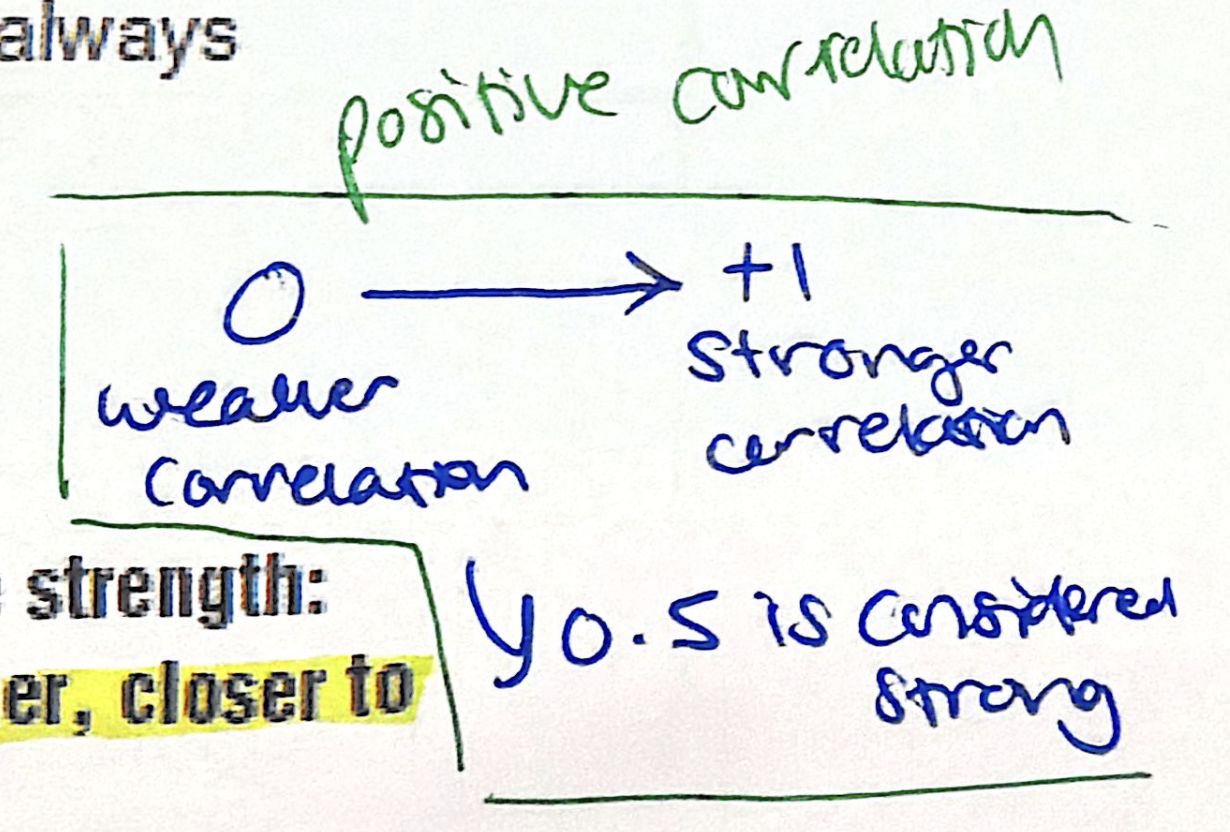 always
positive correlation
0 → +1
weaker correlation
stronger correlation
strength:
er, closer to
0.5 is considered
strong